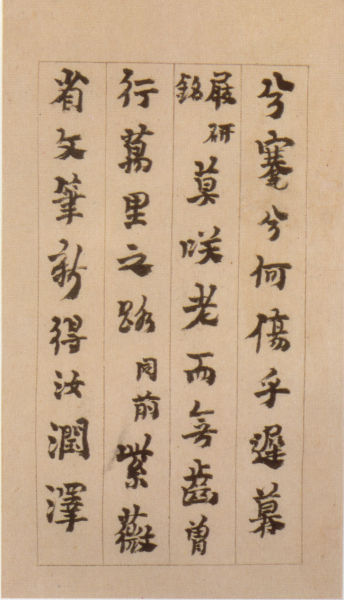 兮蹇兮何傷乎遲暮
屐研銘莫咲老而無齒曽
行萬里之路同前紫薇
省文筆新得汝潤澤